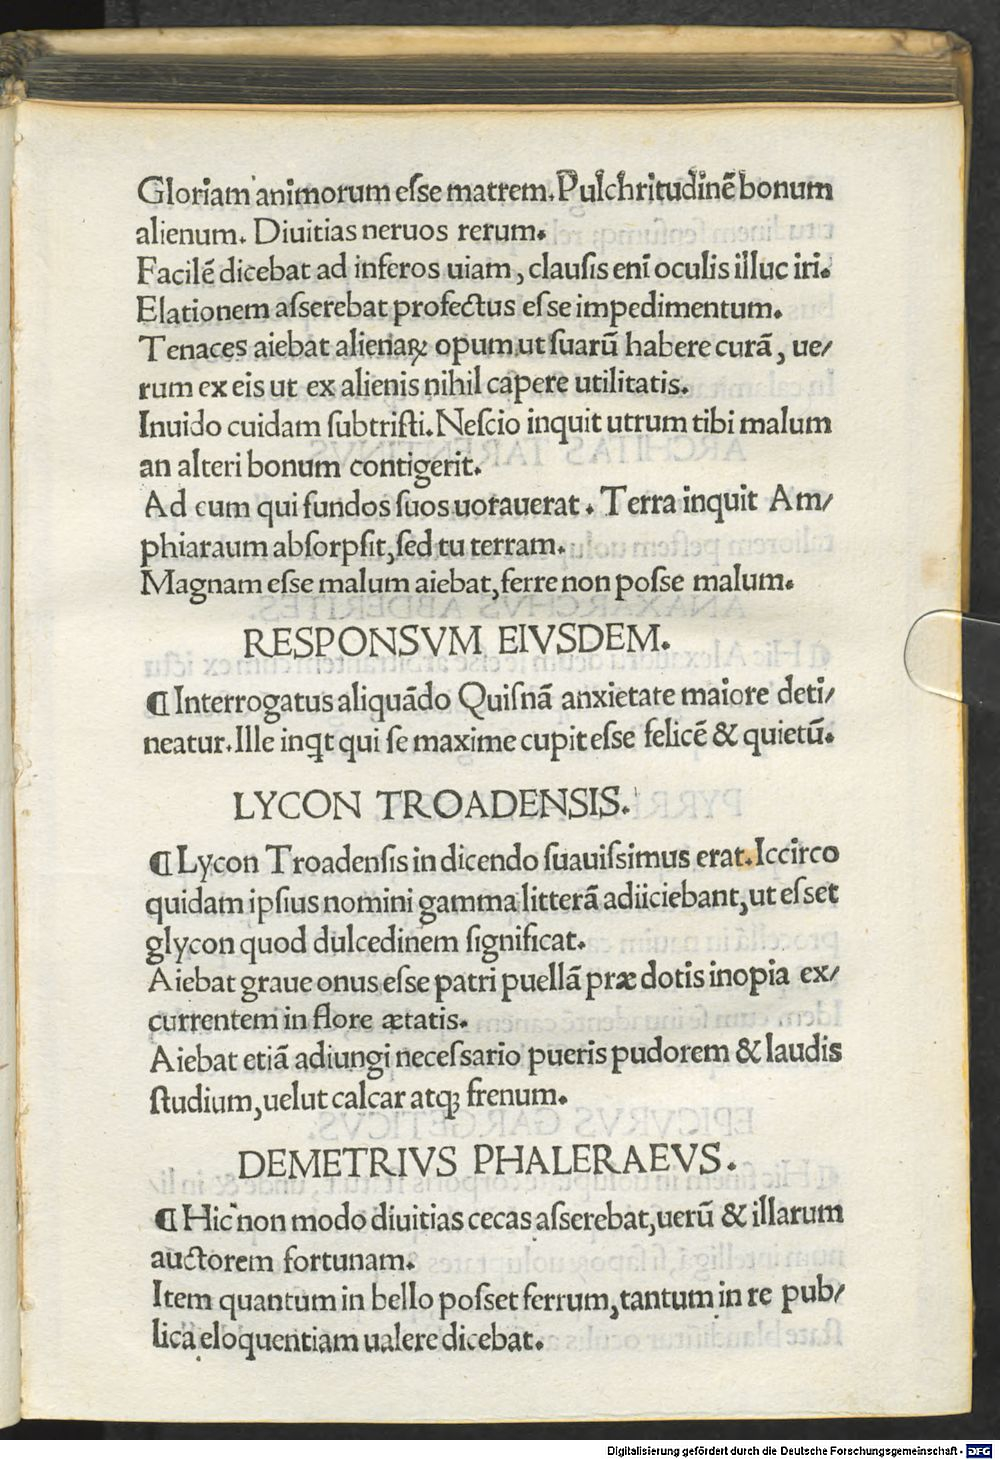 Gloriam animorum eſse matrem. Pulchritudinē bonum
alienum. Diuitias neruos rerum.
Facilē dicebat ad inferos uiam, clauſis enī oculis illuc iri.
Elationem aſserebat profectus eſse impedimentum.
Tenaces aiebat alienaꝝ opum ut ſuarū habere curā, ue/
rum ex eis ut ex alienis nihil capere utilitatis.
Inuido cuidam ſubtriſti. Neſcio inquit utrum tibi malum
an alteri bonum contigerit.
Ad eum qui fundos ſuos uorauerat. Terra inquit Am/
phiaraum abſorpſit, ſed tu terram.
Magnam eſse malum aiebat, ferre non poſse malum.
RESPONSVM EIVSDEM.
¶ Interrogatus aliquādo Quiſnā anxietate maiore deti/
neatur. Ille inqt qui ſe maxime cupit eſse felicē & quietū.
LYCON TROADENSIS.
¶ Lycon Troadenſis in dicendo ſuauiſsimus erat. Iccirco
quidam ipſius nomini gamma litterā adiiciebant, ut eſset
glycon quod dulcedinem ſignificat.
Aiebat graue onus eſse patri puellā præ dotis inopia ex/
currentem in flore ætatis.
Aiebat etiā adiungi neceſsario pueris pudorem & laudis
ſtudium, uelut calcar atqꝫ frenum.
DEMETRIVS PHALERAEVS.
¶ Hic non modo diuitias cecas aſserebat, uerū & illarum
auctorem fortunam.
Item quantum in bello poſset ferrum, tantum in re pub/
lica eloquentiam ualere dicebat.
Digitalisierung gefördert durch die Deutsche Forschungsgemeinschaft - DFG